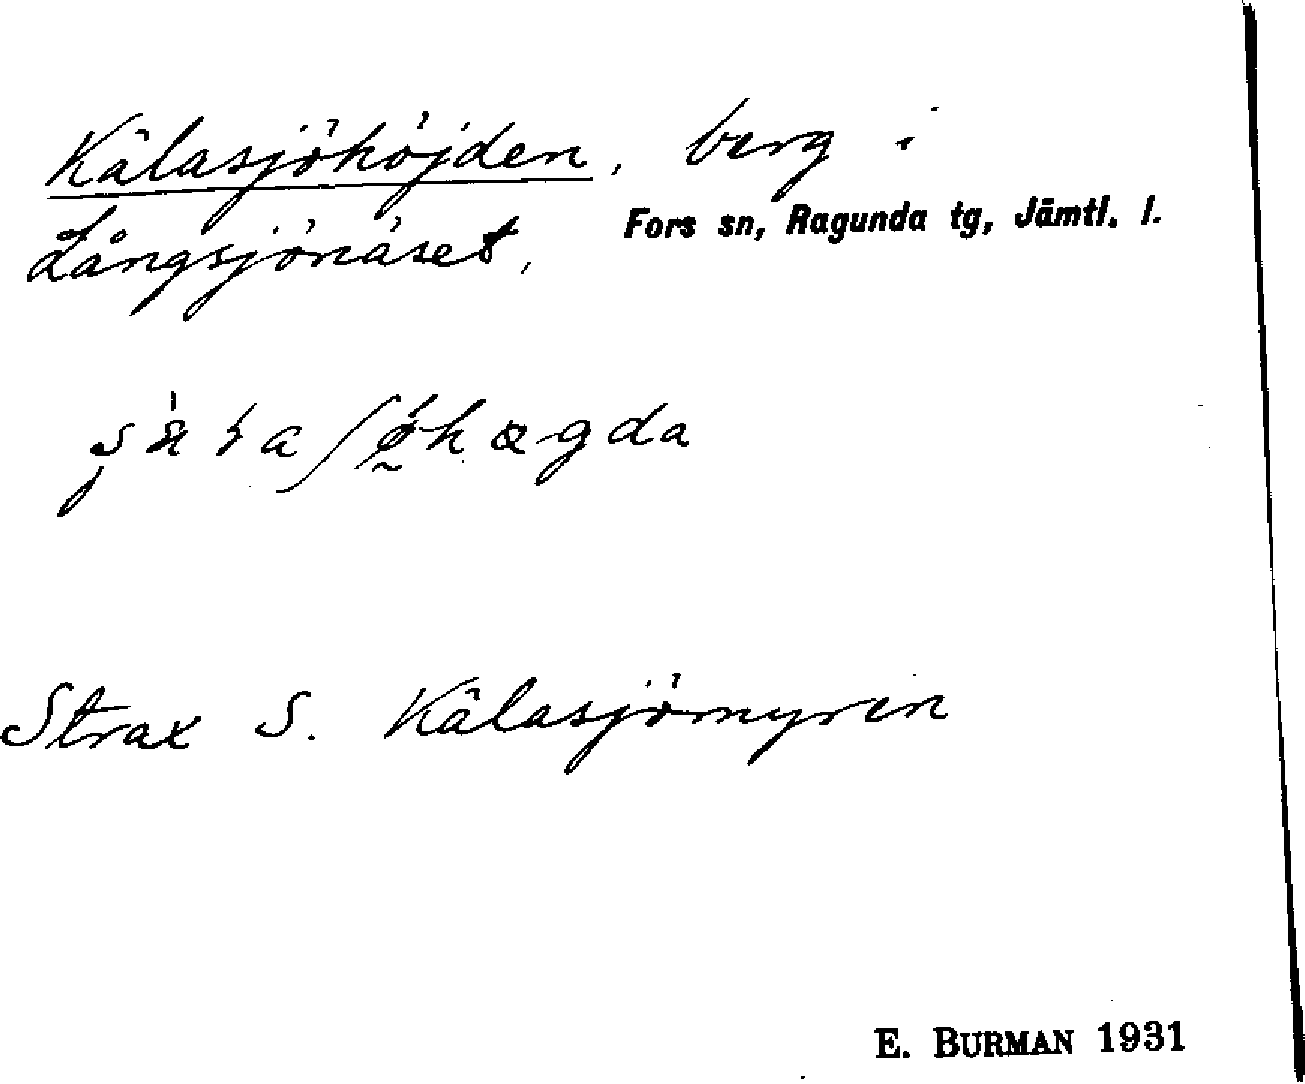 Kälasjöhöjden, berg i
Långsjönäset,
Fors sn, Ragunda tg, Jämtl. l.
Strax S. Kälasjömyren
E. BURMAN 1931